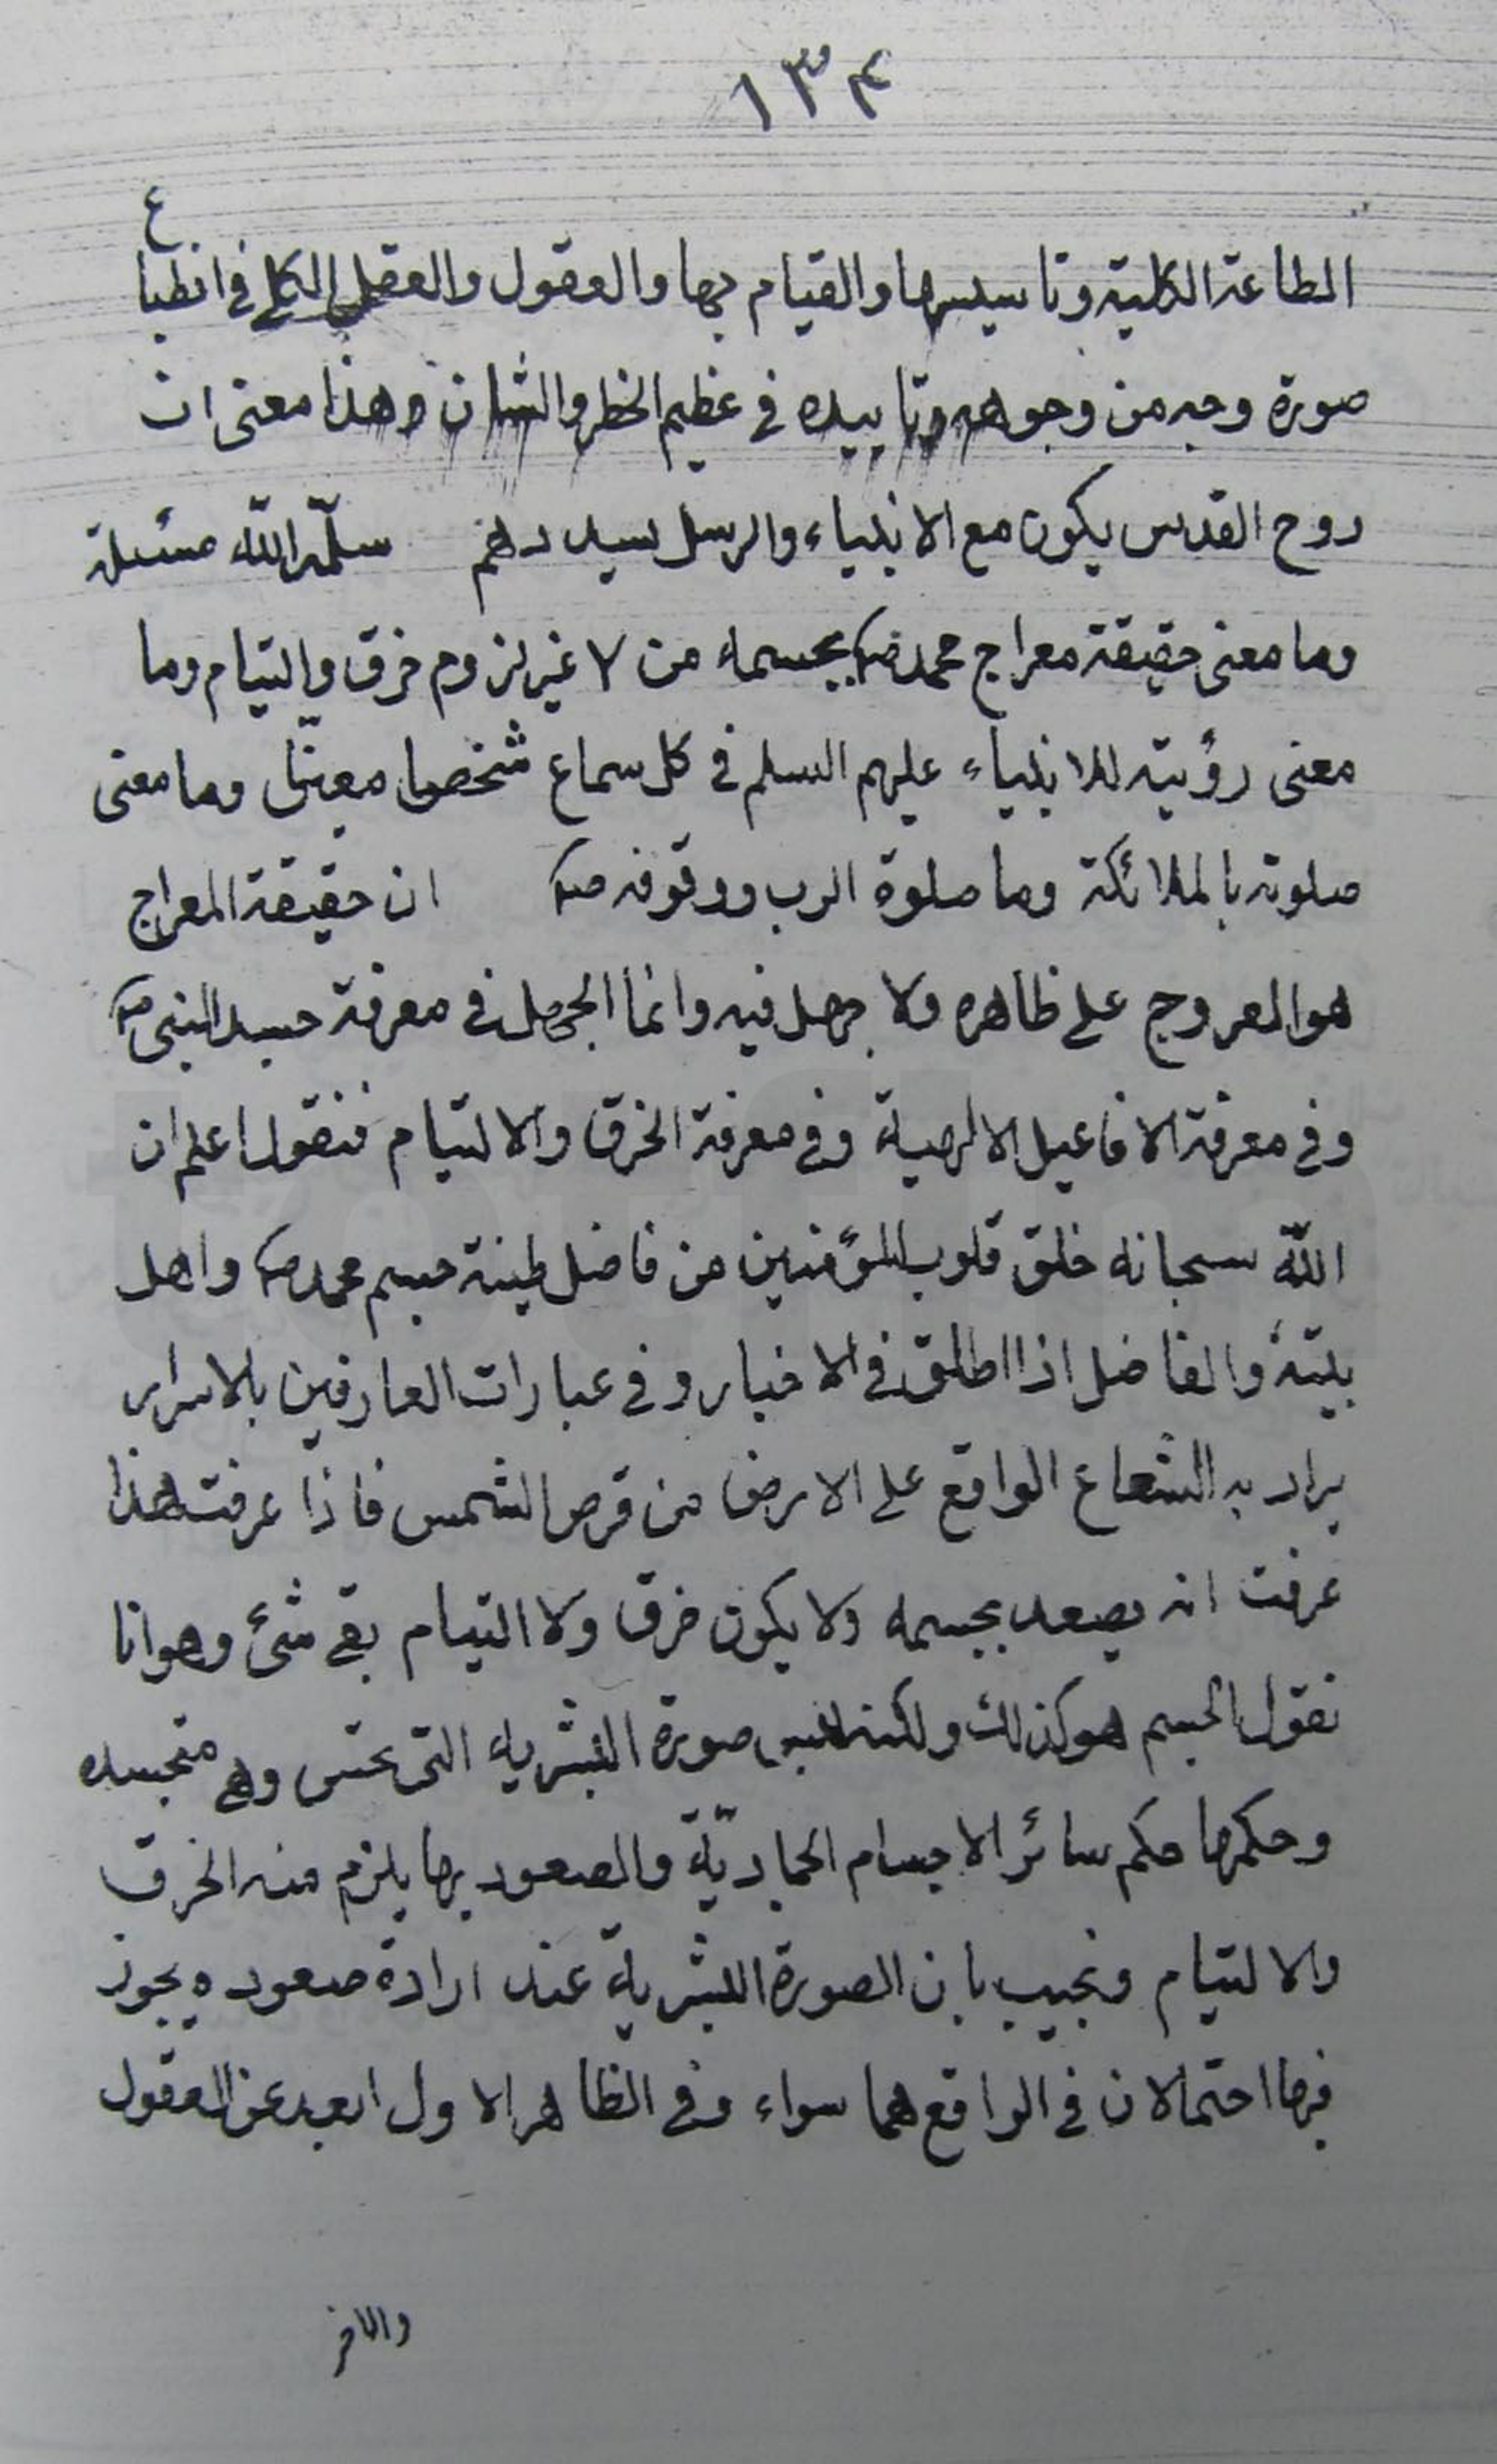 ١٣٤
الطاعة الكلية وتاسيسها والقيام بها والعقول والعقل الكلي في انطباع
صورة وجه من وجوهه وتاييده في عظيم الخطر والشان وهذا معنى ان
روح القدس يكون مع الانبياء والرسل يسددهم سلّمه اللّه مسئلة
وما معنى حقيقة معراج محمد ص بجسمه من لا غير لزوم خرق والتيام وما
معنى رؤيته للانبياء عليهم السلم في كل سماع شخصا معيّنا وما معنى
صلوته بالملائكة وما صلوة الرب ووقوفه ص ان حقيقة المعراج
هو العروج على ظاهره ولا جهل فيه وانما الجهل في معرفة جسد النبي ص
وفي معرفة الافاعيل الالهية وفي معرفة الخرق والالتيام فنقول اعلم ان
اللّه سبحانه خلق قلوب المؤمنين من فاضل طينة جسم محمد ص واهل
بيته والفاضل اذا اطلق في الاخبار وفي عبارات العارفين بالاسرار
يراد به الشعاع الواقع على الارض من قرص الشمس فاذا عرفت هذا
عرفت انه يصعد بجسمه ولا يكون خرق ولا التيام بقي شئ وهو انا
نقول الجسم هو كذلك ولكنه لبس صورة البشرية التي تحس وهي متجسده
وحكمها حكم سائر الاجسام الجماديّة والصعود بها يلزم منه الخرق
والالتيام ونجيب بان الصورة البشرية عند ارادة صعوده يجوز
فيها احتمالان في الواقع هما سواء وفي الظاهر الاول ابعد عن العقول
والاخر